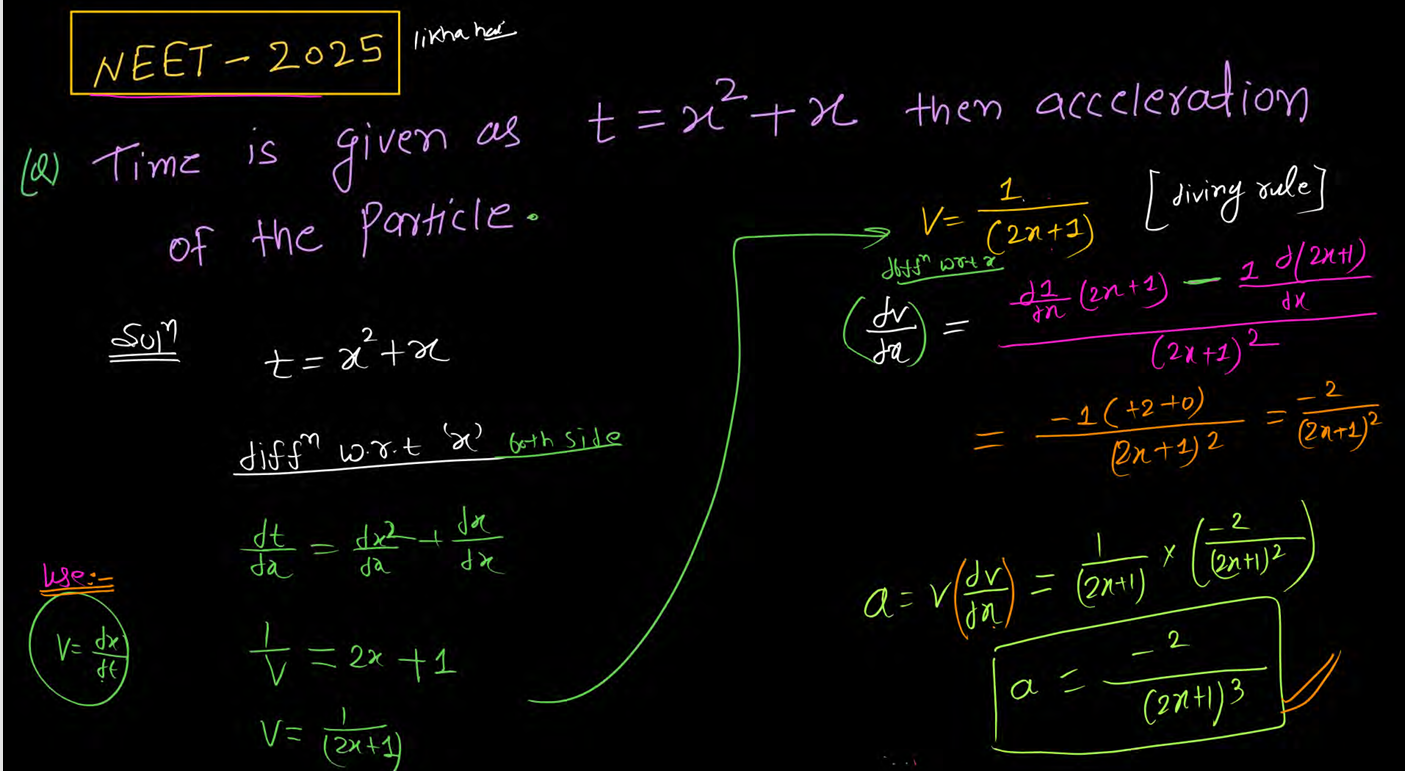 NEET - 2025 likha hai
(Q) Time is given as t = x² + x then acceleration
of the Particle.
Solⁿ t = x² + x
diffⁿ w.r.t 'x' both side
dt/dx = dx²/dx + dx/dx
Use:-
V = dx/dt
1/V = 2x + 1
V = 1/(2x+1)
V = 1/(2x+1) [diving rule]
diffⁿ w.r.t x
(dv/dx) = (d1/dx (2x+1) - 1 d(2x+1)/dx)/(2x+1)²
= -1(+2+0)/(2x+1)² = -2/(2x+1)²
a = v(dv/dx) = 1/(2x+1) × (-2/(2x+1)²)
a = -2/(2x+1)³